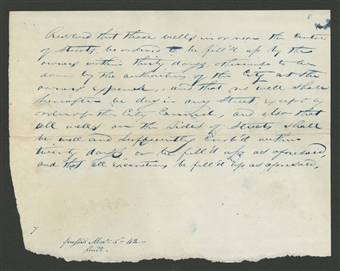 Resolved that those wells in or near the centre
of Streets be ordered to be fill'd up by the
owners within thirty days otherwise to be
done by the authorities of the City at the
owners expence, and that no well shall
hereafter be dug in any Street except by
order of the City Council, and also that
all wells on the sides of Streets shall
be well and sufficiently curb'd within
twenty days or be fill'd up as aforesaid,
and that all excavations be fill'd up as aforesaid,
7
passed 5 42